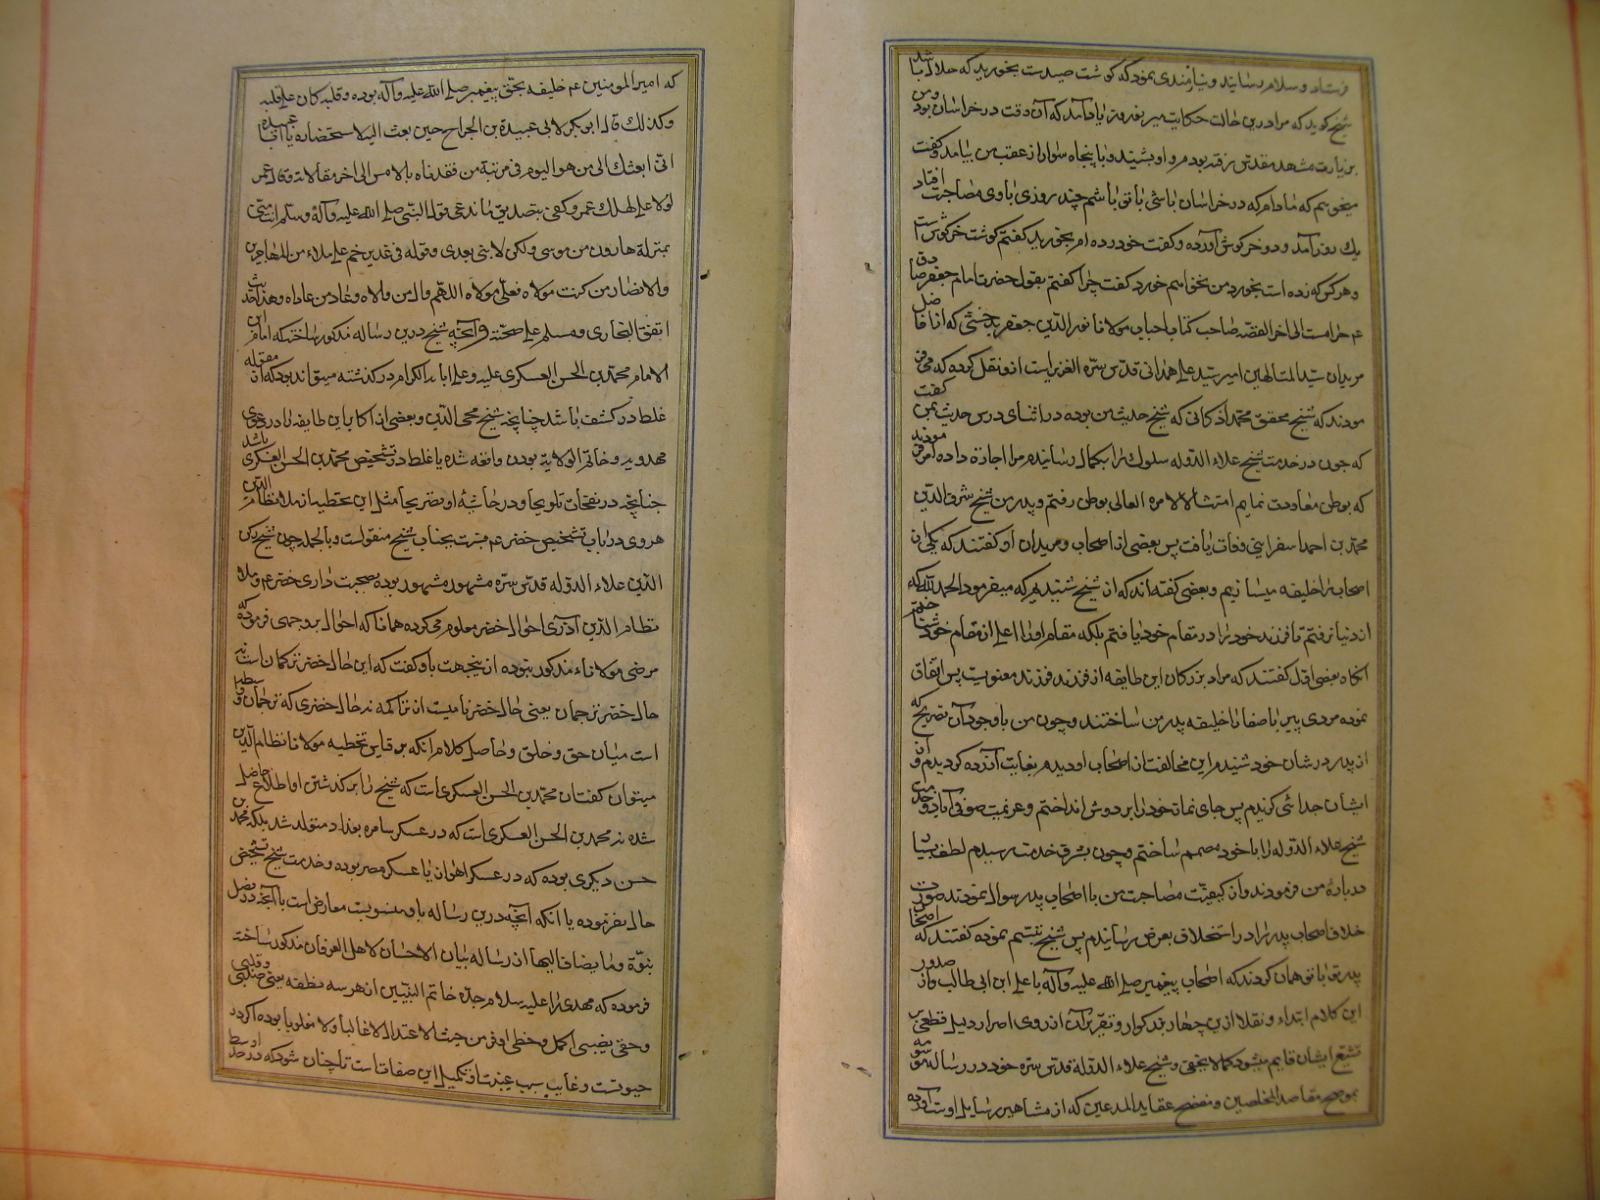 فرستاد و سلام رسانید و نیازمندی نمود که گوشت صیدست بخورید که حلال باشد
شیخ گوید که مرا درین حالت حکایت میر نوروز یاد آمد که آن وقت در خراسان بود و من
بزیارت مشهد مقدس رفته بودم و او بشنید و با پنجاه سوار از عقب من بیامد و گفت
میخواهم که مادام که در خراسان باشی با تو باشم چند روزی با وی مصاحبت افتاد
یک روز آمد و دو خرگوش آورده و گفت خود زده ام بخورید گفتم گوشت خرگوش است
و هر کس که زده است بخورد من نخواهم خورد گفت چرا گفتم بقول حضرت امام جعفر صادق
عم حرامست الی اخر القصه صاحب کتاب احباب مولانا نور الدین جعفر بدخشی که از افاضل
مریدان سید المتالهین امیر سید علی همدانی قدس سره العزیز است ازو نقل کرده که می فر
مودند که شیخ محقق محمد اذکانی که شیخ حدیث من بوده در اثنای درس حدیث بمن گفت
که چون در خدمت شیخ علاء الدوله سلوک را بکمال رسانیدم مرا اجازة داده امر فرمودند
که بوطن معاودت نمایم امتثالا لامره العالی بوطن رفتم و پدر من شیخ شرف الدین
محمد بن احمد اسفراینی وفات یافت پس بعضی از اصحاب و مریدان او گفتند که یکی از
اصحاب را خلیفه میسازیم و بعضی گفته اند که از شیخ شنیدیم که میفرمود الحمد لله که
از دنیا نرفتم تا فرزند خود را در مقام خود یافتم بلکه مقام او را اعلی از مقام خود شناختم
انکاه بعضی اقل گفتند که مراد بزرگان این طایفه از فرزند فرزند معنویست پس اتفاق
نموده مردی پیر با صفا را خلیفه پدر من ساختند و چون من با وجود آن تصریح که
از پدر در شان خود شنیدم این مخالفت از اصحاب او دیدم بغایت آزرده گردیدم و از
ایشان جدائی گزیدم پس جای نماز خود را بر دوش انداختم و عزیمت صوفی آباد و خدمت
شیخ علاء الدوله را با خود مصمم ساختم و چون بشرف خدمت رسیدم لطف بسیار
درباره من فرمودند و از کیفیت مصاحبت من با اصحاب پدر سوال نمودند صورت
خلاف اصحاب پدر را در استخلاف بعرض رسانیدم پس شیخ تبسم نموده گفتند که اصحاب
پدر تو با تو همان کردند که اصحاب پیغمبر صلی الله علیه وآله با علی ابن ابی طالب و از صدور
این کلام ابتداء و نقلا ازین چهار بزرگوار و تقریر آن از روی اصرار دلیل قطعی بر
تشیع ایشان قایم میشود کمالا یخفی و شیخ علاء الدوله قدس سره خود در رساله موسومه
بموضح مقاصد المخلصین و مفضح عقاید المدعین که از مشاهیر رسایل اوست آورده
که امیر المومنین عم خلیفه بحق پیغمبر صلی الله علیه وآله بوده و قلبه کان علی قلبه
وکذلک قال ابو بکر لابی عبیدة بن الجراح حین بعث الیه لاستحضاره یا ابا عبیده
انی ابعثک الی من هو الیوم فی مرتبة من فقدناه بالامس الی اخر مقالاته وقال عمر
لولا علی لهلک عمر وکفی بتصدیق ما ندعی قول النبی صلی الله علیه وآله وسلم انت منی
بمنزلة هارون من موسی ولکن لا نبی بعدی وقوله فی غدیر خم علی ملاء من المهاجرین
والانصار من کنت مولاه فعلی مولاه اللهم وال من والاه وعاد من عاداه وهذا حدیث
اتفق البخاری ومسلم علی صحته و آنچه شیخ درین رساله مذکور ساخته که امام ابن
الامام محمد بن الحسن العسکری علیه وعلی ابائه الکرام در گذشته میتواند بود که از مقوله
غلط در کشف باشد چنانچه شیخ محی الدین و بعضی از اکابر این طایفه را در دعوی
مهدویه و خاتم الولایة بودن واقع شده یا غلط در تشخیص محمد بن الحسن العسکری باشد
چنانچه در نفحات تلویحا و در حاشیه او تصریحا مثل این تخطیه از ملا نظام الدین
هروی در باب تشخیص خضر عم نسبت بجناب شیخ منقولست و بالجمله چون شیخ رکن
الدین علاء الدوله قدس سره مشهور مشهور بوده بصحبت داری خضر عم و ملا
نظام الدین از وی احوال خضر معلوم می کرده همانا که احوال بر وجهی فرموده که
مرضی مولاناء مذکور نبوده ازینجهت باو گفت که این حال خضر ترکمان است نه
حال خضر ترجمان یعنی حال خضر نامیست از تراکمه نه حال خضری که ترجمان و واسطه
است میان حق و خلق و حاصل کلام انکه بر قیاس تخطیه مولانا نظام الدین
میتوان گفت ان محمد بن الحسن العسکری است که شیخ را بر گذشتن او اطلاع حاصل
شده نه محمد بن الحسن العسکری است که در عسکر سامره بغداد متولد شد بلکه محمد بن
حسن دیگری بوده که در عسکر اهواز یا عسکر مصر بوده و خدمت شیخ تشخیص
حال نفرموده یا انکه آنچه درین رساله باو منسوبست معارض است با آنچه در فصل
نبوة وما یضاف الیها از رساله بیان الاحسان لاهل العرفان مذکور ساخته
فرموده که مهدی را علیه سلام جده خاتم النبیین از هر سه نطفه یعنی صلبی و قلبی
و حقی نصیبی اکمل و حظی اوفر من حیث الاعتدال لا غالبا ولا مغلوبا بوده اگر در
حیوتست و غایب سبب غیبت او تکمیل این صفات است تا چنان شود که در حد اوسط